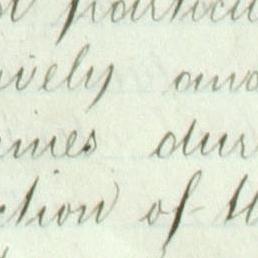 particu
ively and
emies dur
ction of th